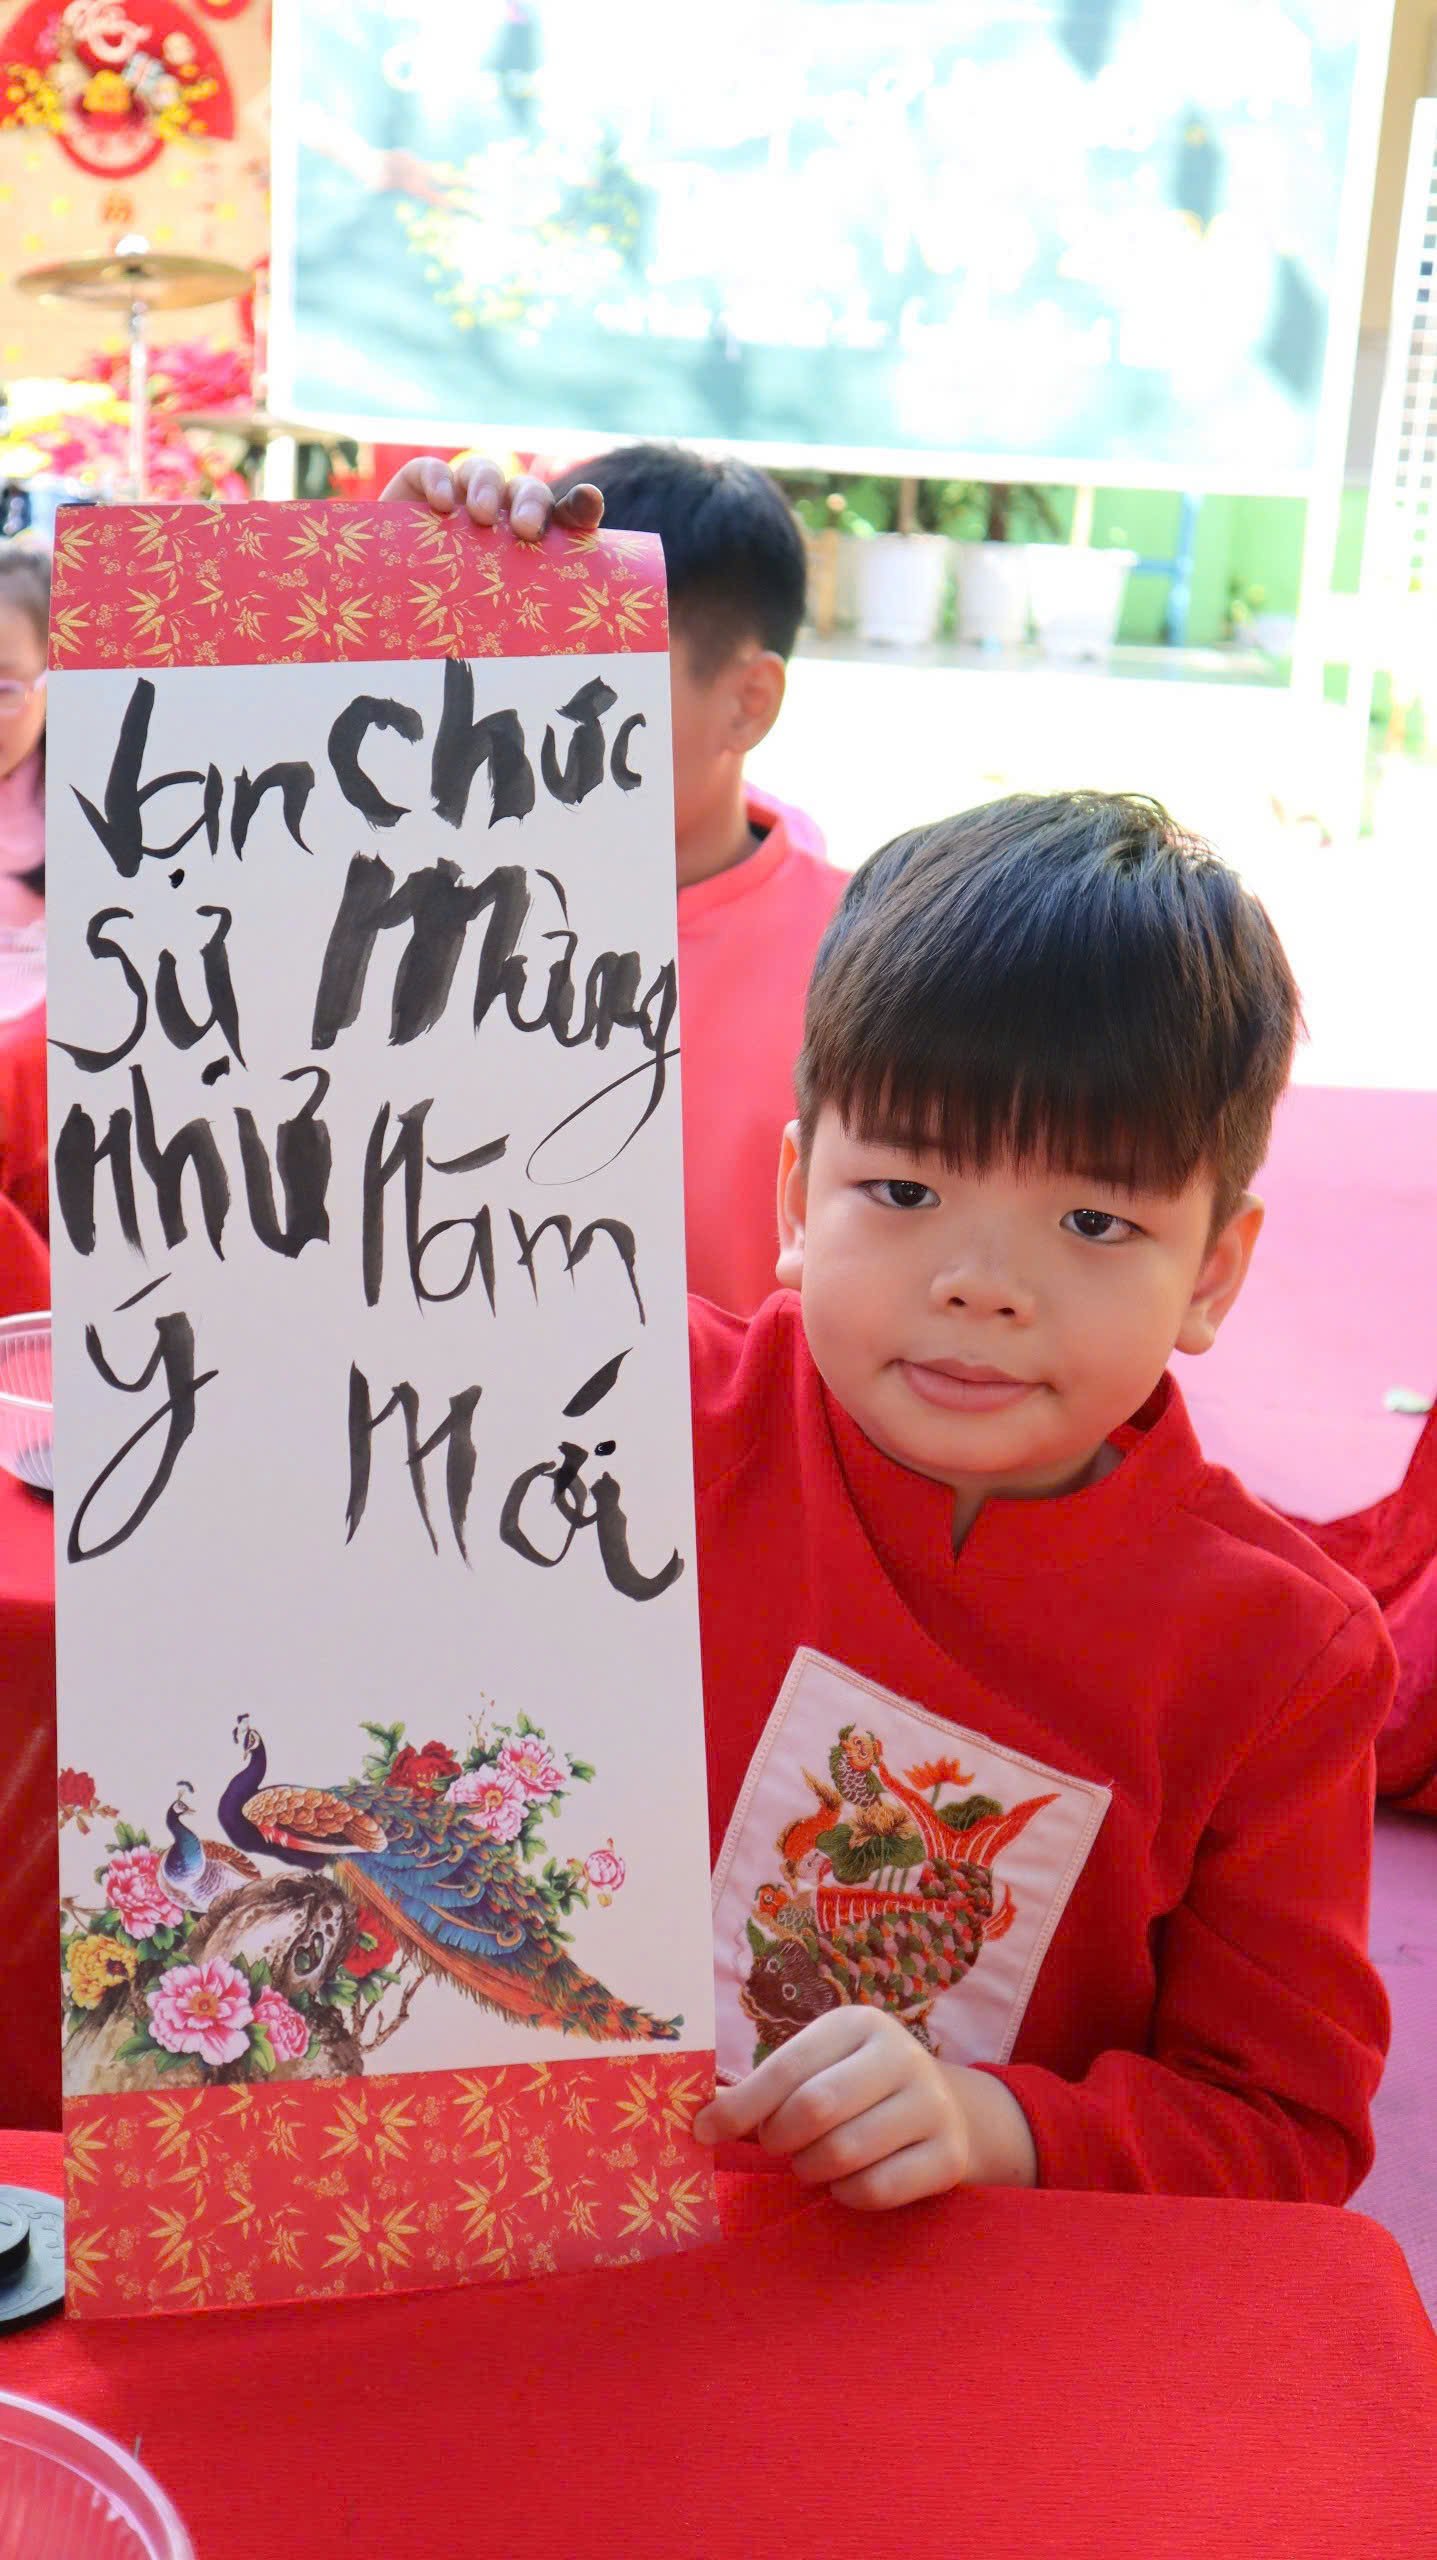 chúc
mừng
Năm
mới
Vạn
sự
như
ý